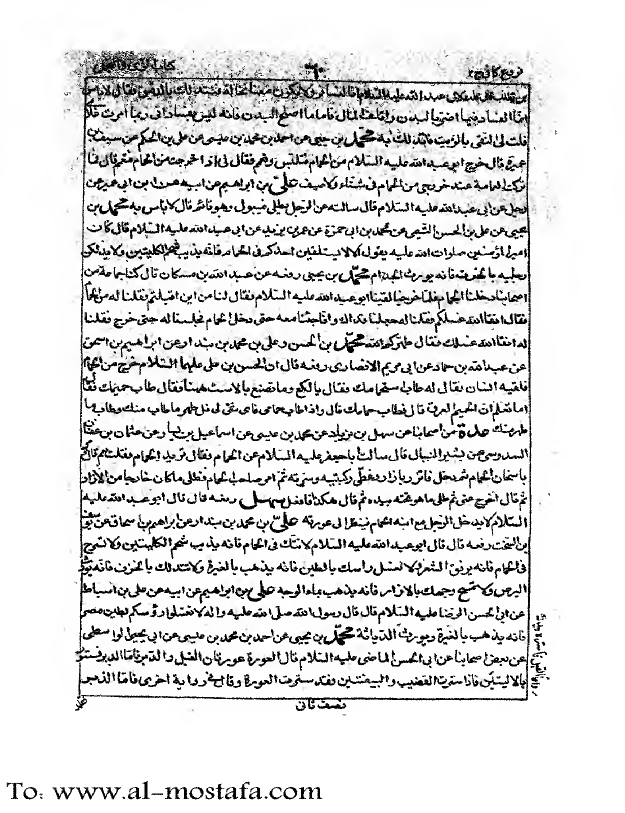 فروع كافى ج٢
٦٠
كتاب الزى والتجمل
عبد الله عليه السلام
انما الفساد فيما اضر بالبدن واتلف المال فاما ما اصلح البدن فانه ليس بفساد انى ربما امرت غلا
فلت لى النقى بالزيت فاتدلك به محمد بن يحيى عن احمد بن محمد بن عيسى عن على بن الحكم عن سيف بن
عميرة قال خرج ابو عبد الله عليه السلام من الحمام فتلبس وتعمم فقال لى اذا خرجت من الحمام فتعمم قال فما
تركت العمامة عند خروجى من الحمام فى شتاء ولا صيف على بن ابراهيم عن ابيه عن ابن ابى عمير عن
رجل عن ابى عبد الله عليه السلام قال سالته عن الرجل يطلى فيبول وهو قائم قال لا باس به محمد بن
يحيى عن على بن الحسن التيمى عن محمد بن ابى حمزة عن عمر بن يزيد عن ابى عبد الله عليه السلام قال كان
امير المؤمنين صلوات الله عليه يقول الا لا يستلقين احدكم فى الحمام فانه يذيب شحم الكليتين ولا يدلكن
رجليه بالخزف فانه يورث الجذام محمد بن يحيى رفعه عن عبد الله بن مسكان قال كنا جماعة من
اصحابنا دخلنا الحمام فلما خرجنا لقينا ابو عبد الله عليه السلام فقال لنا من اين اقبلتم فقلنا له من الحمام
فقال انقا الله غسلكم فقلنا له جعلنا فداك وانا جئنا معه حتى دخل الحمام فجلسنا له حتى خرج فقلنا
له انقا الله غسلك فقال طهركم الله محمد بن الحسن وعلى بن محمد بن بندار عن ابراهيم بن اسحق
عن عبد الله بن حماد عن ابى مريم الانصارى رفعه قال ان الحسن بن على عليهما السلام خرج من الحمام
فلقيه انسان فقال له طاب استحمامك فقال يا لكع وما تصنع بالاست هيهنا فقال طاب حميمك فقال
اما تعلم ان الحميم العرق قال فطاب حمامك قال واذا طاب حمامى فاى شىء لى قل طهر ما طاب منك وطاب ما
طهر منك عدة من اصحابنا عن سهل بن زياد عن محمد بن عيسى عن اسماعيل بن يسار عن عثمان بن عفان
السدوسى عن بشير النبال قال سالت ابا جعفر عليه السلام عن الحمام فقال تريد الحمام فقلت نعم قال فامر
باسخان الحمام ثم دخل فاتزر بازار وغطى ركبتيه وسرته ثم امر صاحب الحمام فطلى ما كان خارجا من الازار
ثم قال اخرج عنى ثم طلى هو ما تحته بيده ثم قال هكذا فافعل سهل رفعه قال قال ابو عبد الله عليه
السلام لا يدخل الرجل مع ابنه الحمام فينظر الى عورته على بن محمد بن بندار عن ابراهيم بن اسحاق عن يوسف
بن السخت رفعه قال قال ابو عبد الله عليه السلام لا تتك فى الحمام فانه يذيب شحم الكليتين ولا تسرح
فى الحمام فانه يرقق الشعر ولا تغسل راسك بالطين فانه يذهب بالغيرة ولا تتدلك بالخزف فانه يورث
البرص ولا تمسح وجهك بالازار فانه يذهب بماء الوجه على بن ابراهيم عن ابيه عن على بن اسباط
عن ابى الحسن الرضا عليه السلام قال قال رسول الله صلى الله عليه واله لا تغسلوا رؤسكم بطين مصر
فانه يذهب بالغيرة ويورث الدياثة محمد بن يحيى عن احمد بن محمد بن عيسى عن ابى يحيى الواسطى
عن بعض اصحابنا عن ابى الحسن الماضى عليه السلام قال العورة عورتان القبل والدبر فاما الدبر فمستور
بالاليتين فاذا سترت القضيب والبيضتين فقد سترت العورة وقال فى رواية اخرى فاما الدبر
نصف ثانى
To: www.al-mostafa.com